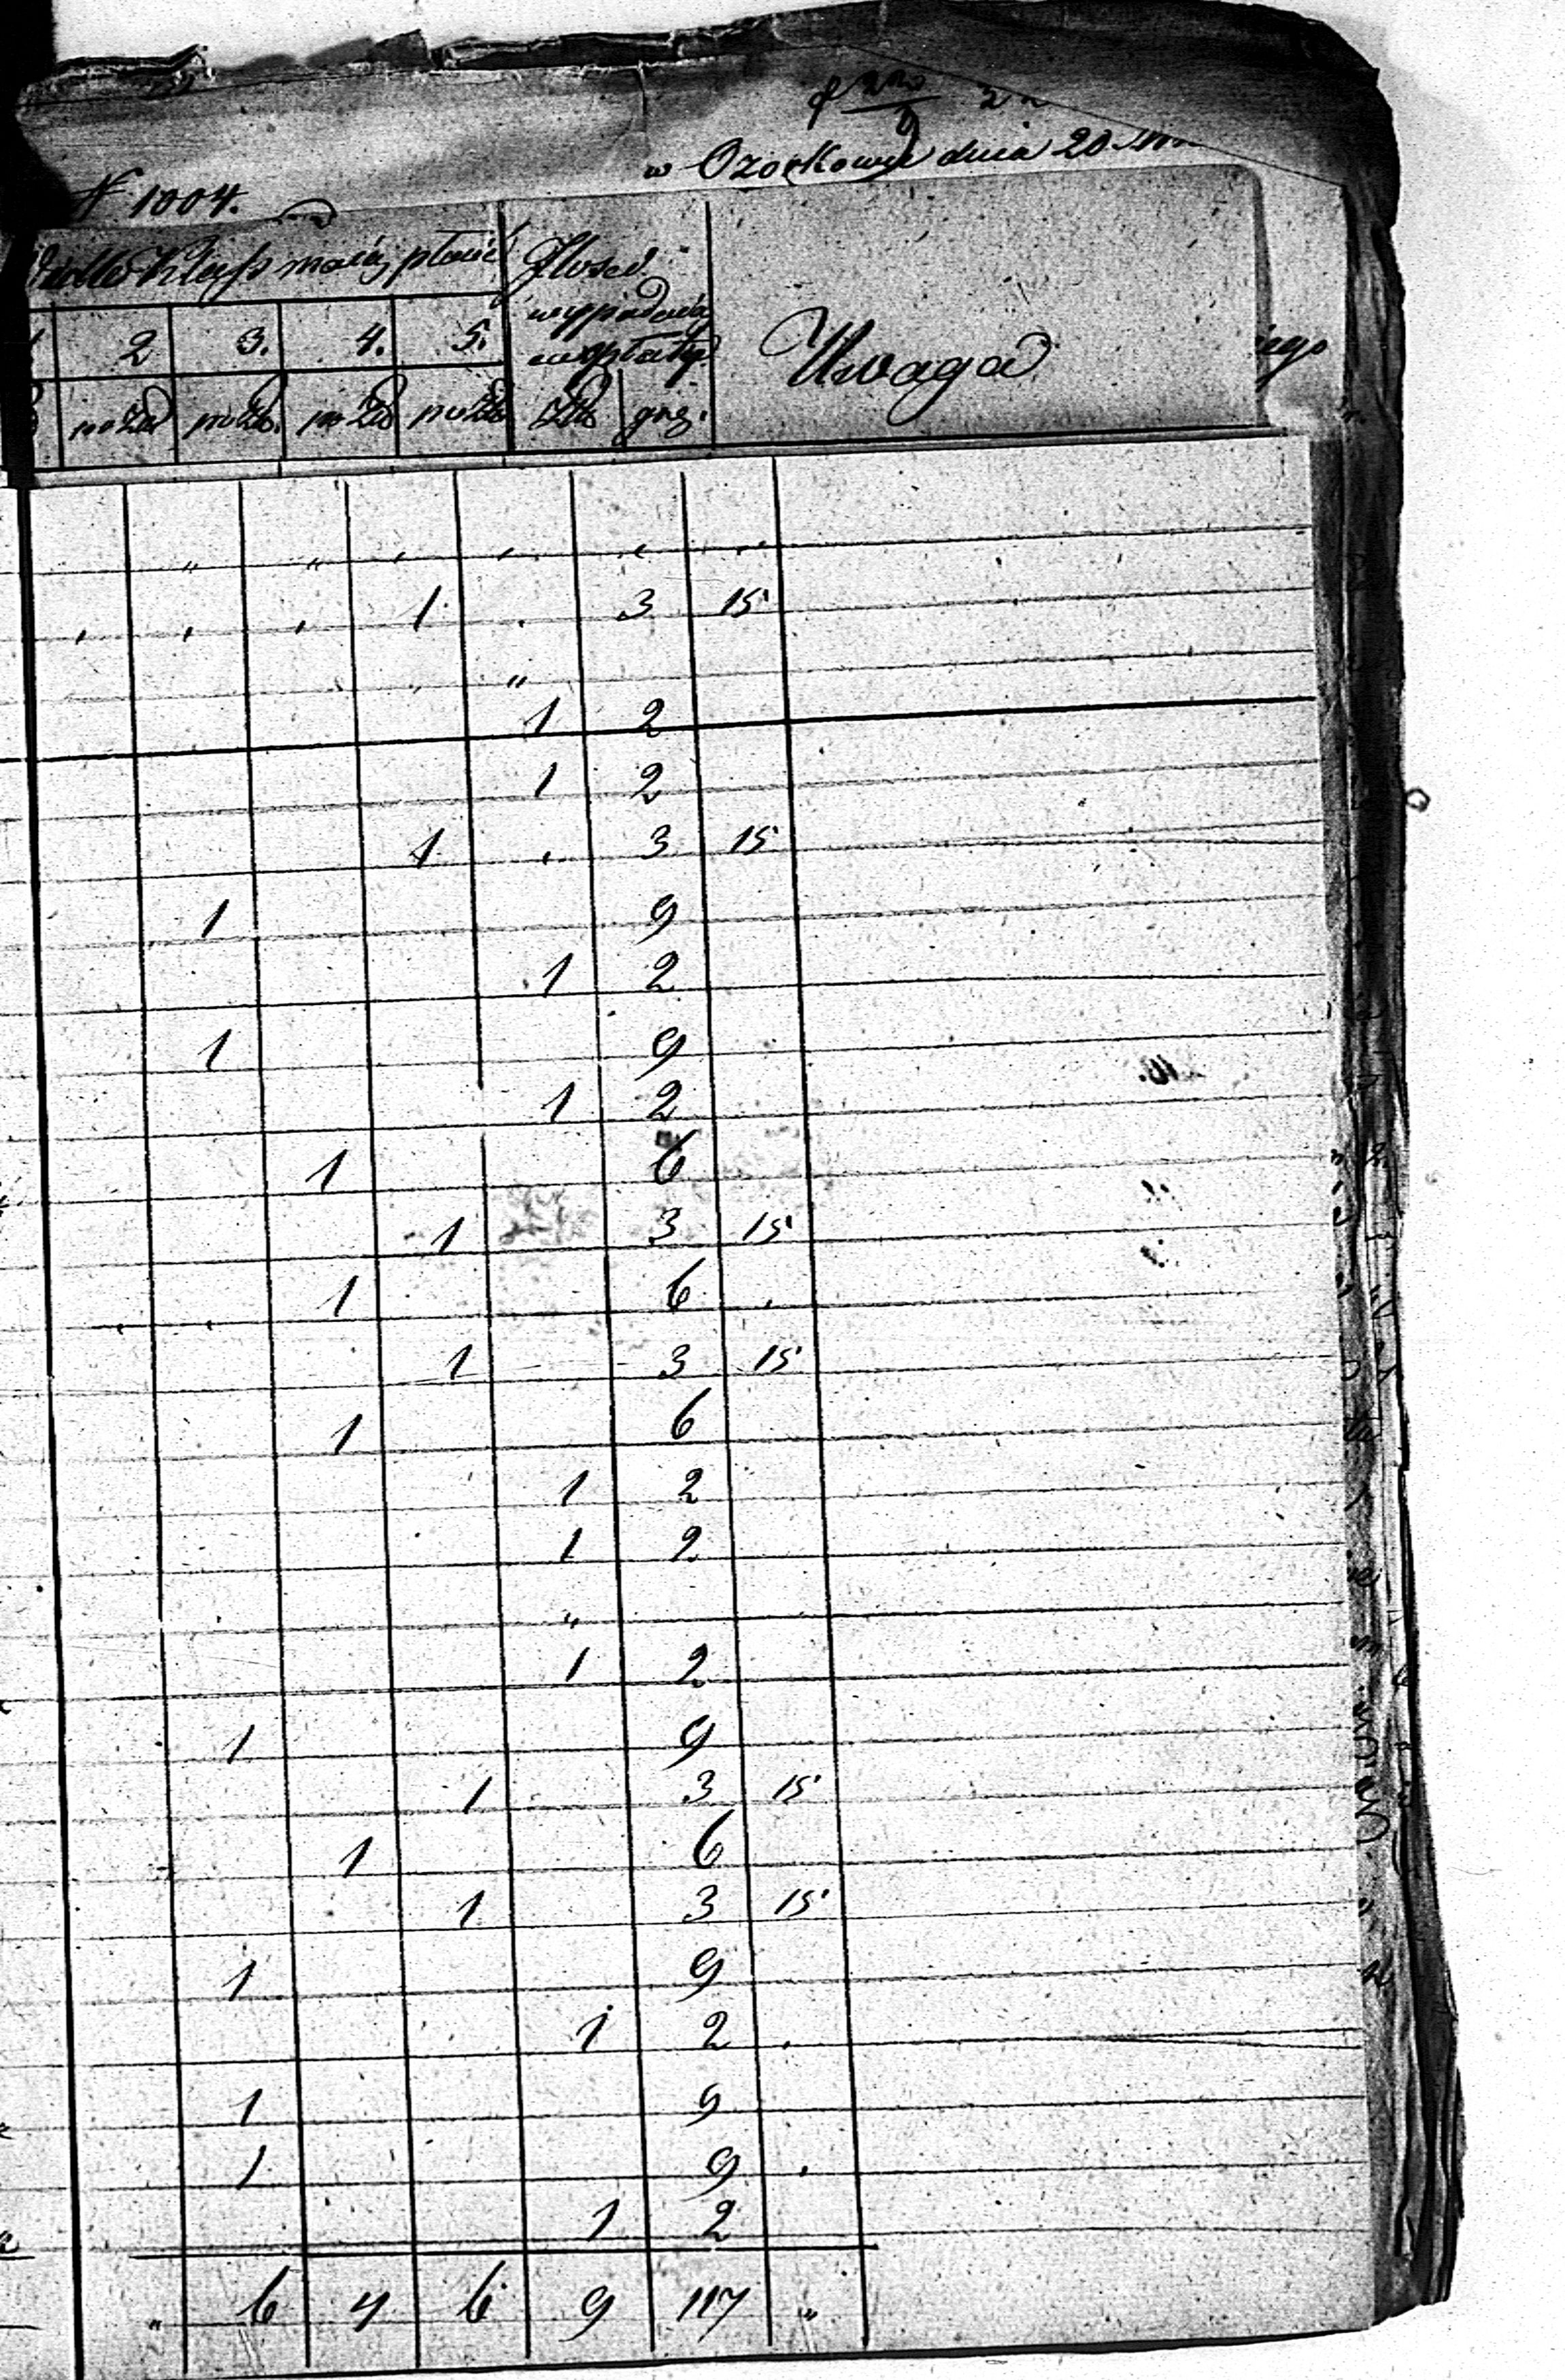 w Ozorkowie dnia 20
N 1004.
Klass maią płacić Ilosć
wypadaią
2 3. 4. 5. Uwaga
po Złot po Zło. po Zło po Zło Złto grz.
" " , , , "
, , , 1 . 3 15
"
1 2
1 2
1 , 3 15
1 9
1 2
1 9
1 2
1 6
1 3 15
1 6 .
1 3 15
1 6
1 2
1 2
"
1 2
1 9
1 3 15
1 6
1 3 15
1 9
1 2 .
1 9
1 9 .
1 2
" 6 4 6 9 117 "